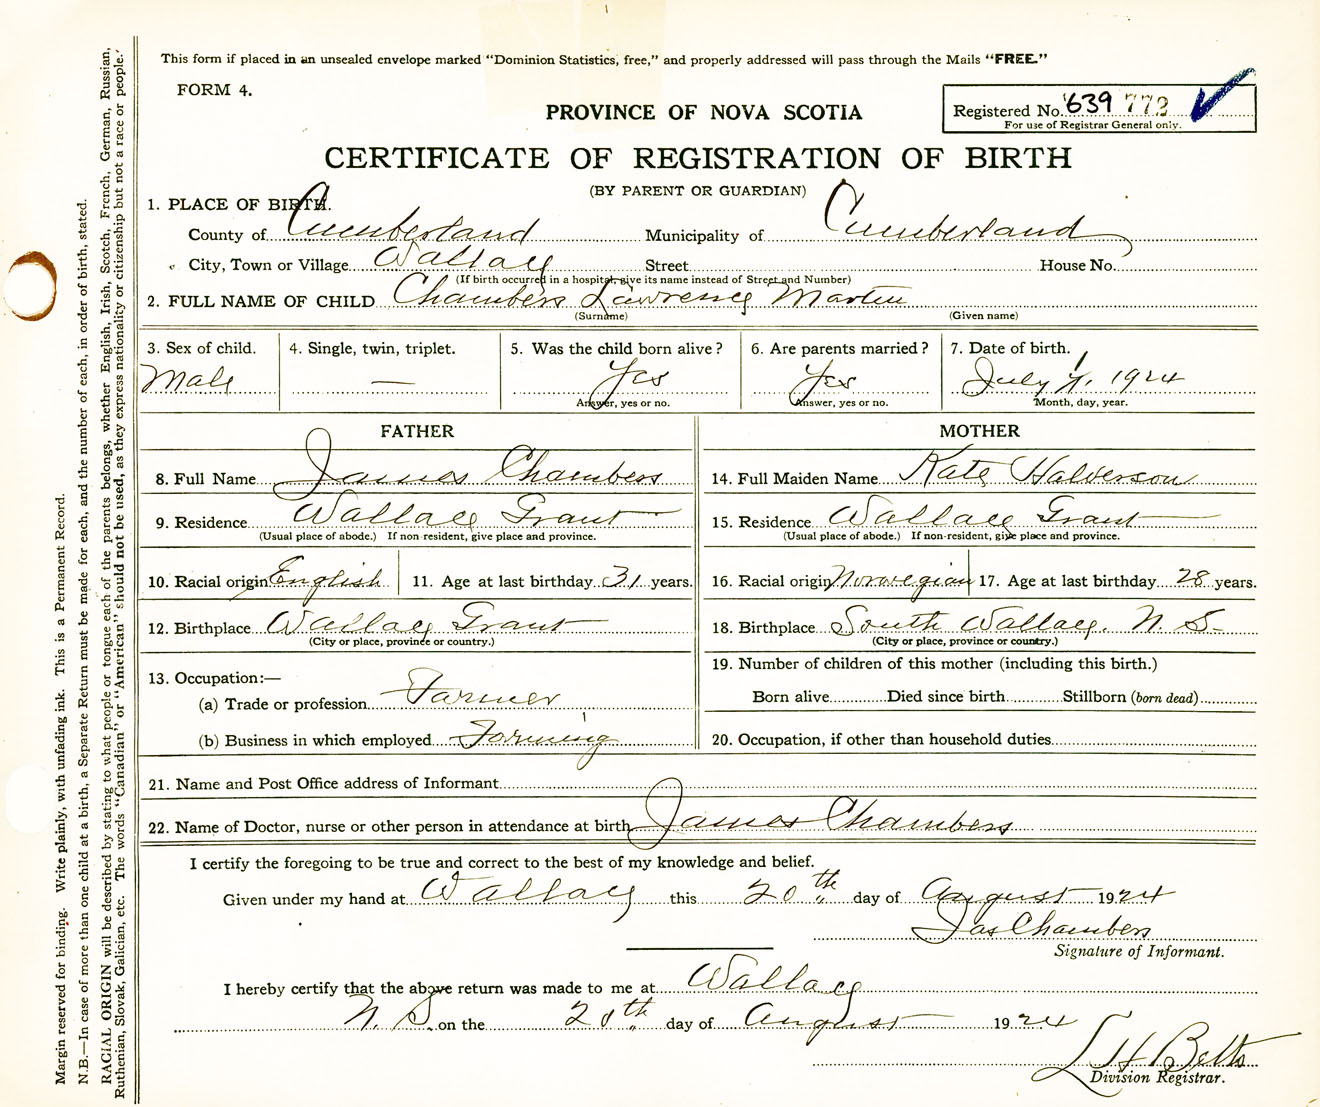 This form if placed in an unsealed envelope marked "Dominion Statistics, free," and properly addressed will pass through the Mails "FREE."
FORM 4.
PROVINCE OF NOVA SCOTIA
Registered No. 639 772
For use of Registrar General only.
CERTIFICATE OF REGISTRATION OF BIRTH
(BY PARENT OR GUARDIAN)
1. PLACE OF BIRTH.
County of Cumberland Municipality of Cumberland
City, Town or Village Wallace Street House No.
(If birth occurred in a hospital, give its name instead of Street and Number)
2. FULL NAME OF CHILD Chambers Lawrence Martin
(Surname) (Given name)
3. Sex of child. 4. Single, twin, triplet. 5. Was the child born alive? 6. Are parents married? 7. Date of birth.
Male — Yes Yes July 1924
Answer, yes or no. Answer, yes or no. Month, day, year.
FATHER MOTHER
8. Full Name James Chambers 14. Full Maiden Name Kate Halverson
9. Residence Wallace Grant 15. Residence Wallace Grant
(Usual place of abode.) If non-resident, give place and province. (Usual place of abode.) If non-resident, give place and province.
10. Racial origin English 11. Age at last birthday 31 years. 16. Racial origin Norwegian 17. Age at last birthday 28 years.
12. Birthplace Wallace Grant 18. Birthplace South Wallace. N. S.
(City or place, province or country.) (City or place, province or country.)
13. Occupation:— 19. Number of children of this mother (including this birth.)
(a) Trade or profession Farmer Born alive Died since birth Stillborn (born dead)
(b) Business in which employed Farming 20. Occupation, if other than household duties
21. Name and Post Office address of Informant
22. Name of Doctor, nurse or other person in attendance at birth James Chambers
I certify the foregoing to be true and correct to the best of my knowledge and belief.
Given under my hand at Wallace this 20th day of August 1924
Jas Chambers
Signature of Informant.
I hereby certify that the above return was made to me at Wallace
N. S. on the 20th day of August 1924
L H Betts
Division Registrar.
Margin reserved for binding. Write plainly, with unfading ink. This is a Permanent Record.
N.B.—In case of more than one child at a birth, a Separate Return must be made for each, and the number of each, in order of birth, stated.
RACIAL ORIGIN will be described by stating to what people or tongue each of the parents belongs, whether English, Irish, Scotch, French, German, Russian,
Ruthenian, Slovak, Galician, etc. The words "Canadian" or "American" should not be used, as they express nationality or citizenship but not a race or people.